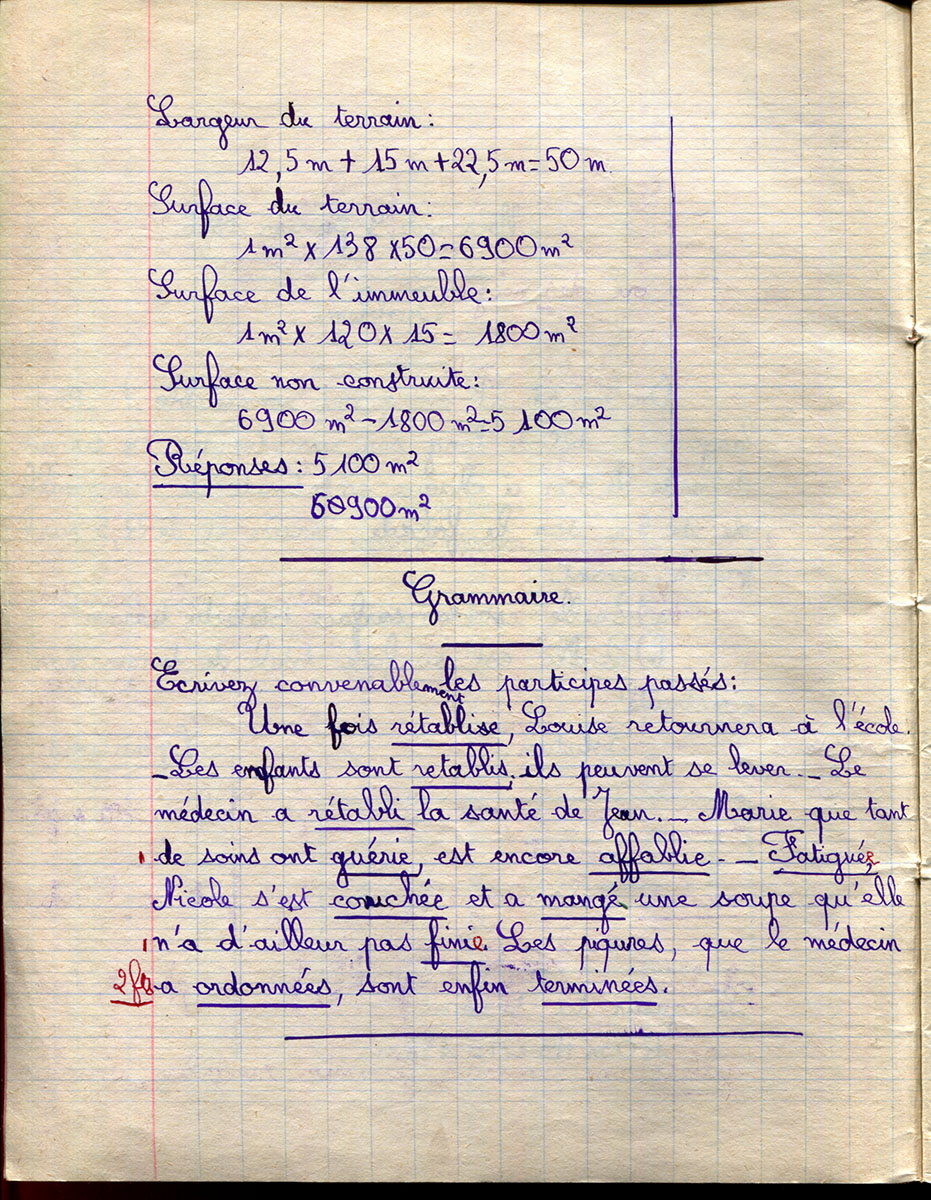 Largeur du terrain:
12,5 m + 15 m + 22,5 m = 50 m
Surface du terrain:
1 m² x 138 x 50 = 6900 m²
Surface de l'immeuble:
1 m² x 120 x 15 = 1800 m²
Surface non construite:
6900 m² - 1800 m² = 5 100 m²
Réponses: 5 100 m²
6900 m²
Grammaire.
Ecrivez convenablement les participes passés:
Une fois rétablise, Louise retournera à l'école.
- Les enfants sont retablis, ils peuvent se lever. - Le
médecin a rétabli la santé de Jean. - Marie que tant
1 de soins ont guérie, est encore affablie - - Fatiguée,
Nicole s'est couchée et a mangé une soupe qu'elle
1 n'a d'ailleur pas finie. Les piqures, que le médecin
2 f a ordonnées, sont enfin terminées.